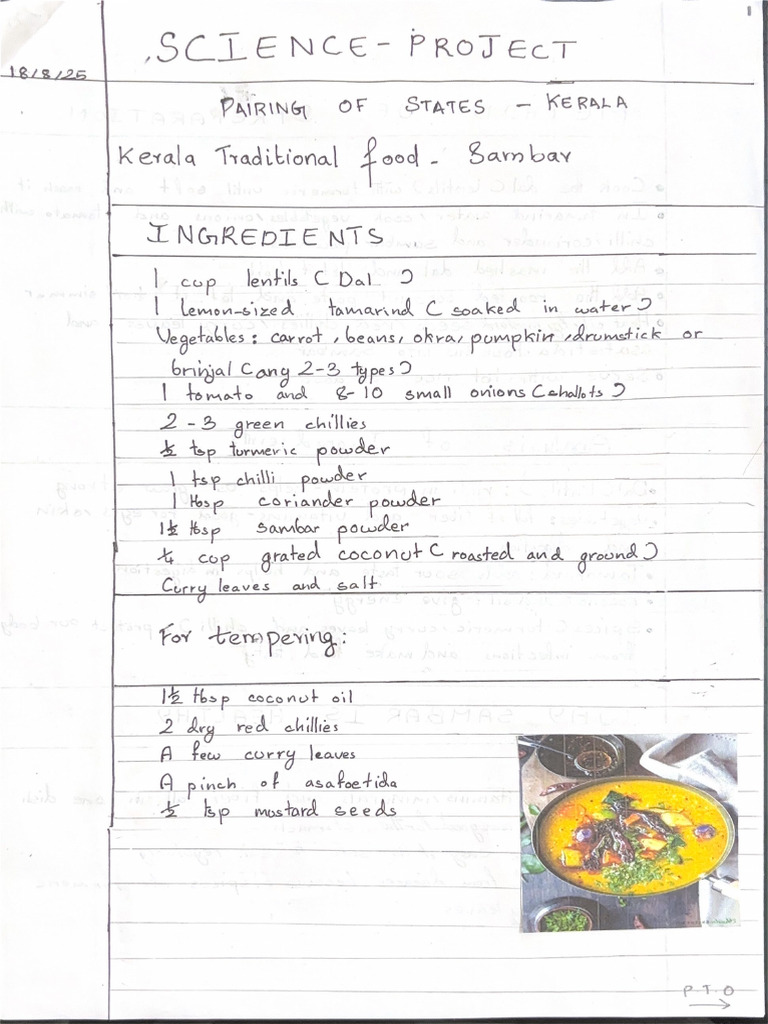 1
SCIENCE - PROJECT
18/8/25
PAIRING OF STATES - KERALA
Kerala Traditional food - Sambar
INGREDIENTS
1 cup lentils (Dal)
1 lemon-sized tamarind (soaked in water)
Vegetables: carrot, beans, okra, pumpkin, drumstick or
brinjal (any 2-3 types)
1 tomato and 8-10 small onions (shallots)
2-3 green chillies
½ tsp turmeric powder
1 tsp chilli powder
1 tbsp coriander powder
1½ tbsp sambar powder
¼ cup grated coconut (roasted and ground)
Curry leaves and salt.
For tempering:
1½ tbsp coconut oil
2 dry red chillies
A few curry leaves
A pinch of asafoetida
½ tsp mustard seeds
P.T.O